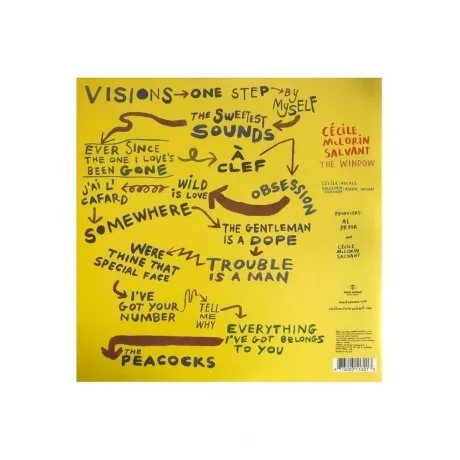 VISIONS→ONE STEP→BY
MYSELF
THE SWEETEST
SOUNDS
EVER SINCE
THE ONE I LOVE'S
BEEN GONE
À
CLEF
OBSESSION
WILD
IS LOVE
J'AI L'
CAFARD
SOMEWHERE
THE GENTLEMAN
IS A DOPE
WERE
THINE THAT
SPECIAL FACE
TROUBLE
IS A MAN
I'VE
GOT YOUR
NUMBER
TELL
ME
WHY
EVERYTHING
I'VE GOT BELONGS
TO YOU
THE
PEACOCKS
CÉCILE
McLORIN
SALVANT
THE WINDOW
PRODUCERS
AL
PRYOR
AND
CÉCILE
McLORIN
SALVANT